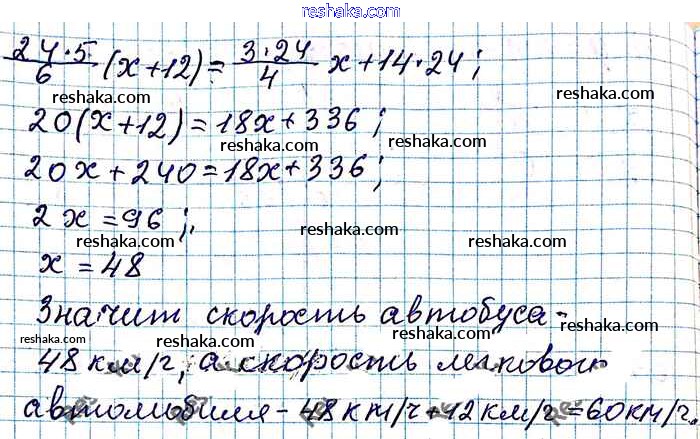 reshaka.com
24·5/6 (x+12) = 3·24/4 x+14·24;
reshaka.com reshaka.com
20(x+12)=18x+336;
reshaka.com
20x+240=18x+336;
reshaka.com
2x=96;
reshaka.com reshaka.com
x=48
reshaka.com
Значит скорость автобуса-
reshaka.com reshaka.com
48км/г, а скорость легкового
reshaka.com
автомобиля-48км/г+12км/г=60км/г.
reshaka.com